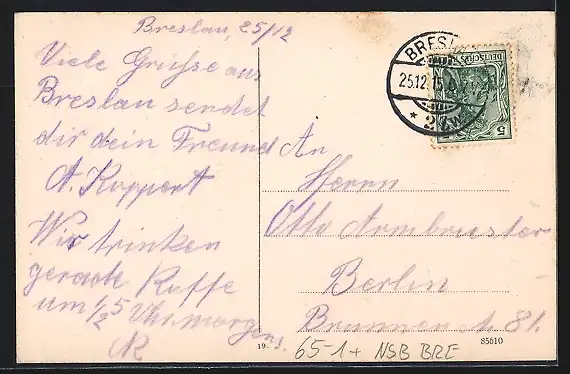 Breslau, 25/12
Viele Grüsse aus
Breslau sendet
dir dein Freund
A. Kuppert
Wir trinken
gerade Kaffe
um ½5 Uhr morgens.
An
Herrn
Otto Armbruster
Berlin
Brunnen 81.
BRESL
25.12.15
* 2 *
DEUTSCHES REICH
5
19.
85610
65-1+ NSB BRE